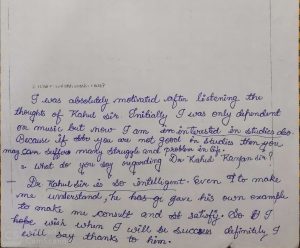 I was absolutely motivated after listening the
thoughts of Rahul sir. Initially I was only dependent
on music but now I am interested in studies also.
Because if you are not good in studies then you
may can suffers many struggle and problem in life.
what do you say regarding Dr Rahul sir?
Dr Rahul sir is so intelligent. Even to make
me understand, he has gave his own example
to make me consult and satisfy. So I
hope wish when I will be success definitely, I
will say thanks to him.